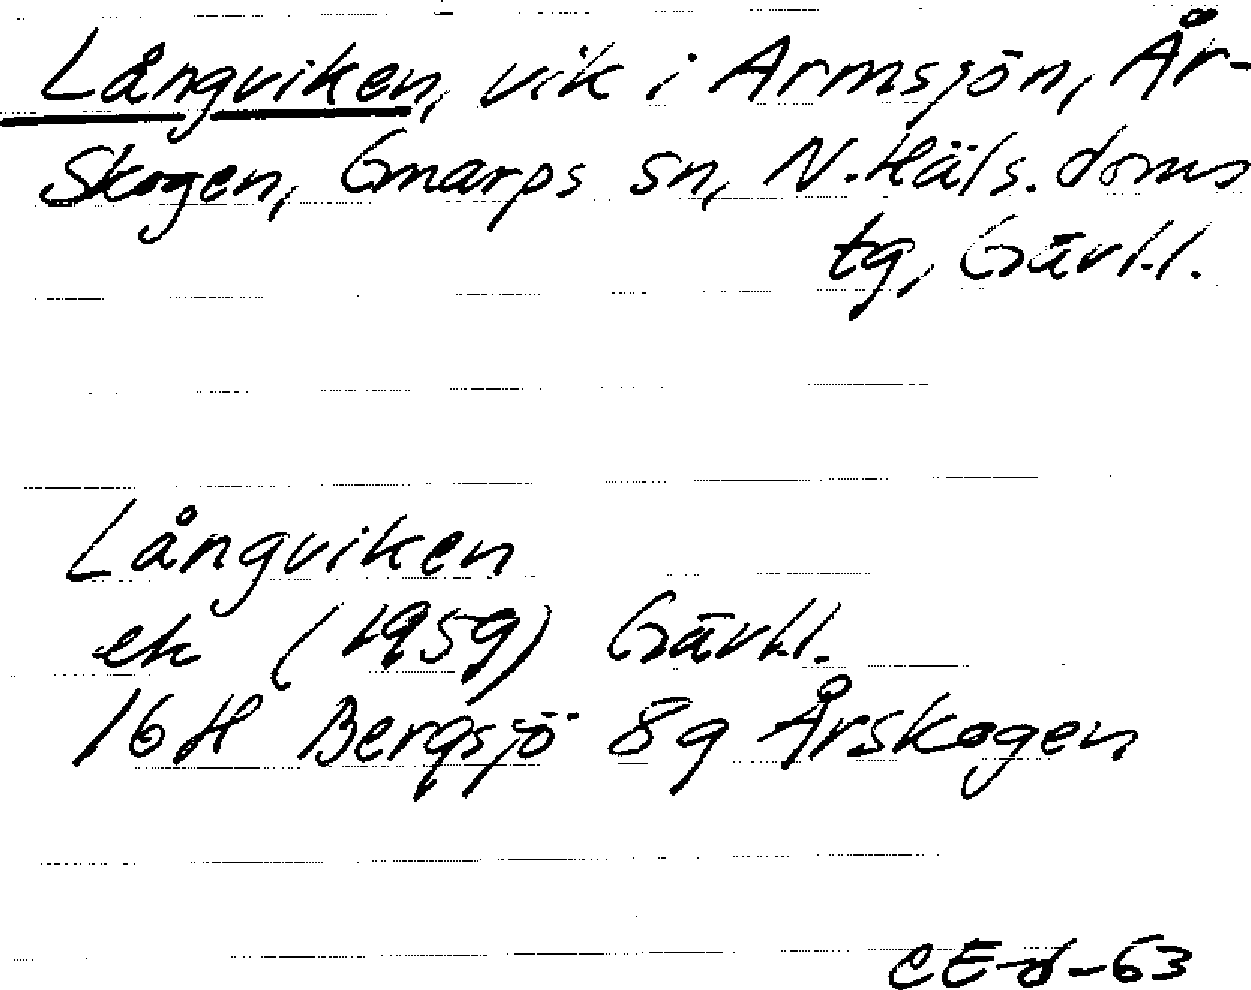 Långviken, vik i Armsjön, År-
skogen, Gnarps sn, N. Häls. doms
tg, Gävl.l.
Långviken
ek (1959) Gävl.l.
16 H Bergsjö 8g Årskogen
CE-d-63